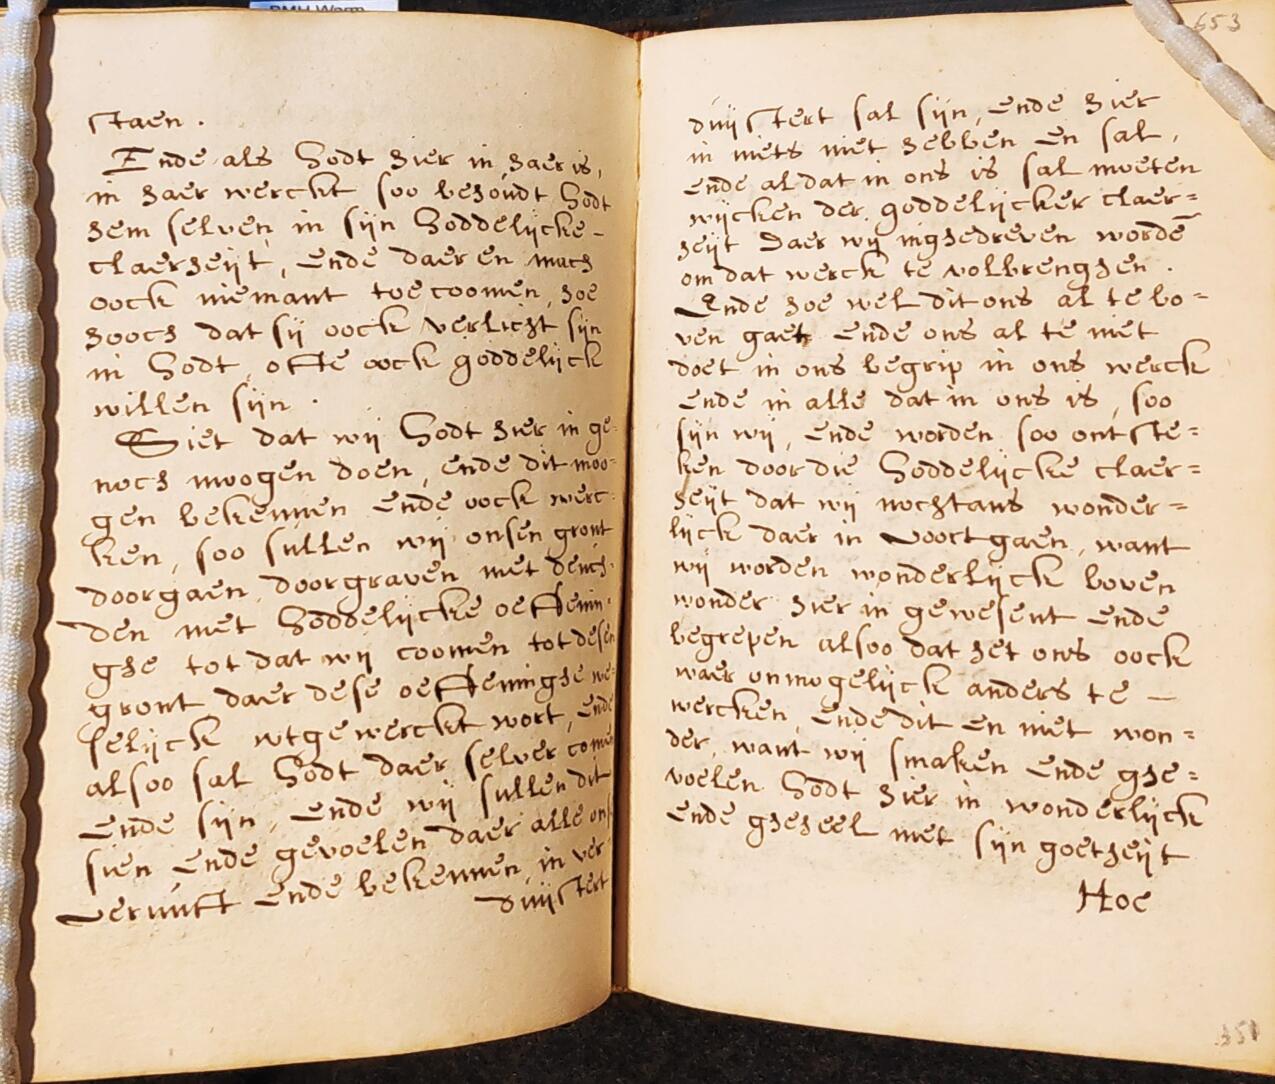 staen .
Ende als Godt hier in haer is,
in haer werckt soo behoudt Godt
hem selven in sijn Goddelijcke-
claerheijt, Ende daer en mach
oock niemant toe coomen, hoe
hooch dat sij oock verlicht sijn
in Godt, ofte oock goddelijck
willen sijn .
Siet dat wij Godt hier in ge-
noch moogen doen, ende dit moo-
gen bekennen Ende oock werc-
ken, soo sullen wij onsen gront
doorgaen, doorgraven met deuch-
den met Goddelijcke oeffenin-
ghe tot dat wij coomen tot desen
gront daer dese oeffeninghe we-
selijck wtgewerckt wort, Ende
alsoo sal Godt daer selver comen
Ende sijn, Ende wij sullen dit
sien Ende gevoelen daer alle ons
vernuft Ende bekennen in ver
duijstert
653
duijstert sal sijn, Ende hier
in niets niet hebben en sal,
Ende al dat in ons is sal moeten
wijcken der goddelijcker claer=
heijt Daer wij inghedreven wordē
om dat werck te volbrenghen .
Ende hoe wel dit ons al te bo=
ven gaet Ende ons al te niet
doet in ons begrip in ons werck
Ende in alle dat in ons is, soo
sijn wij, Ende worden soo ontste=
ken door die Goddelijcke claer=
heijt dat wij nochtans wonder=
lijck daer in voortgaen, want
wij worden wonderlijck boven
wonder hier in gewesent Ende
begrepen alsoo dat het ons oock
waer onmogelijck anders te —
wercken, Ende dit En niet won=
der, want wij smaken Ende ghe=
voelen Godt hier in wonderlijck
Ende gheheel met sijn goetheijt
Hoe
351